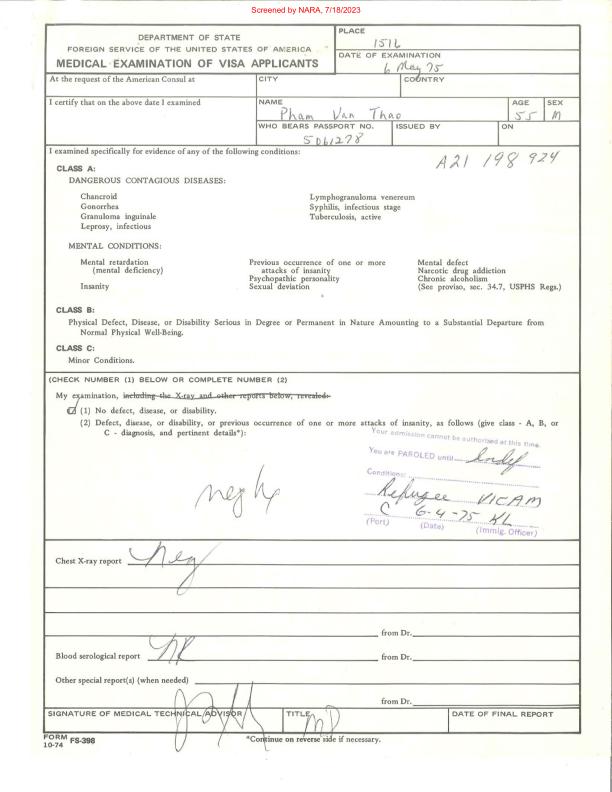 Screened by NARA, 7/18/2023
DEPARTMENT OF STATE
FOREIGN SERVICE OF THE UNITED STATES OF AMERICA
MEDICAL EXAMINATION OF VISA APPLICANTS
PLACE
1516
DATE OF EXAMINATION
6 May 75
At the request of the American Consul at
CITY
COUNTRY
I certify that on the above date I examined
NAME
Pham Van Thao
AGE
55
SEX
M
WHO BEARS PASSPORT NO.
5D61278
ISSUED BY
ON
I examined specifically for evidence of any of the following conditions:
A21 198 924
CLASS A:
DANGEROUS CONTAGIOUS DISEASES:
Chancroid
Gonorrhea
Granuloma inguinale
Leprosy, infectious
Lymphogranuloma venereum
Syphilis, infectious stage
Tuberculosis, active
MENTAL CONDITIONS:
Mental retardation
(mental deficiency)
Insanity
Previous occurrence of one or more
attacks of insanity
Psychopathic personality
Sexual deviation
Mental defect
Narcotic drug addiction
Chronic alcoholism
(See proviso, sec. 34.7, USPHS Regs.)
CLASS B:
Physical Defect, Disease, or Disability Serious in Degree or Permanent in Nature Amounting to a Substantial Departure from
Normal Physical Well-Being.
CLASS C:
Minor Conditions.
(CHECK NUMBER (1) BELOW OR COMPLETE NUMBER (2)
My examination, including the X-ray and other reports below, revealed:
(1) No defect, disease, or disability.
(2) Defect, disease, or disability, or previous occurrence of one or more attacks of insanity, as follows (give class - A, B, or
C - diagnosis, and pertinent details*):
Your admission cannot be authorized at this time.
You are PAROLED until Indef
Conditions:
Refugee VICAM
C 6-4-75 KL
(Port) (Date) (Immig. Officer)
neg hx
Chest X-ray report Neg
from Dr.
Blood serological report NR
from Dr.
Other special report(s) (when needed)
from Dr.
SIGNATURE OF MEDICAL TECHNICAL ADVISOR
TITLE
MD
DATE OF FINAL REPORT
FORM FS-398
10-74
*Continue on reverse side if necessary.